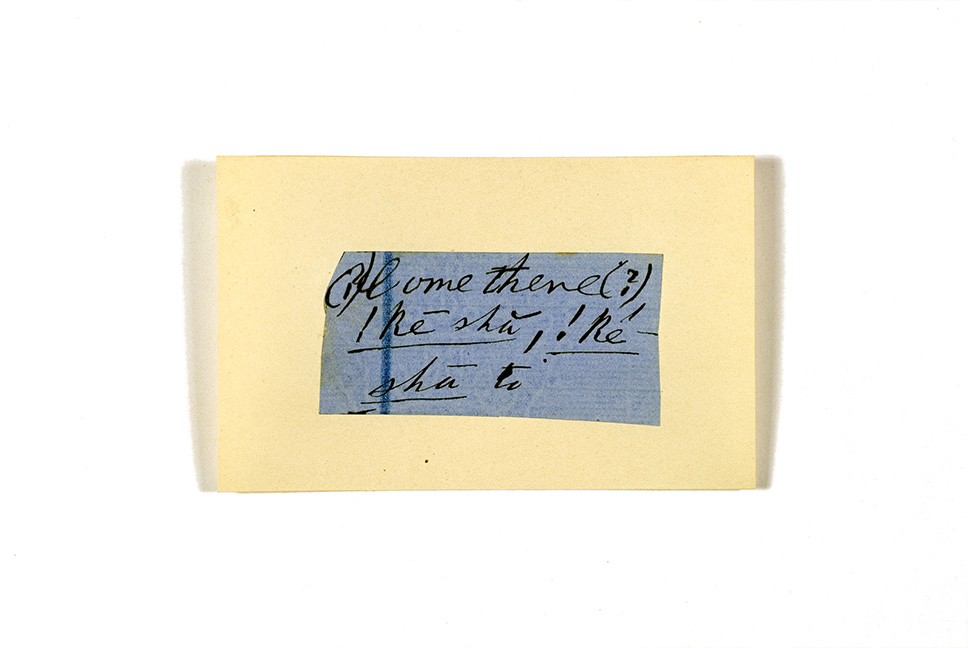 (?) Come there (?)
!kē shā, !ké-
shā ti